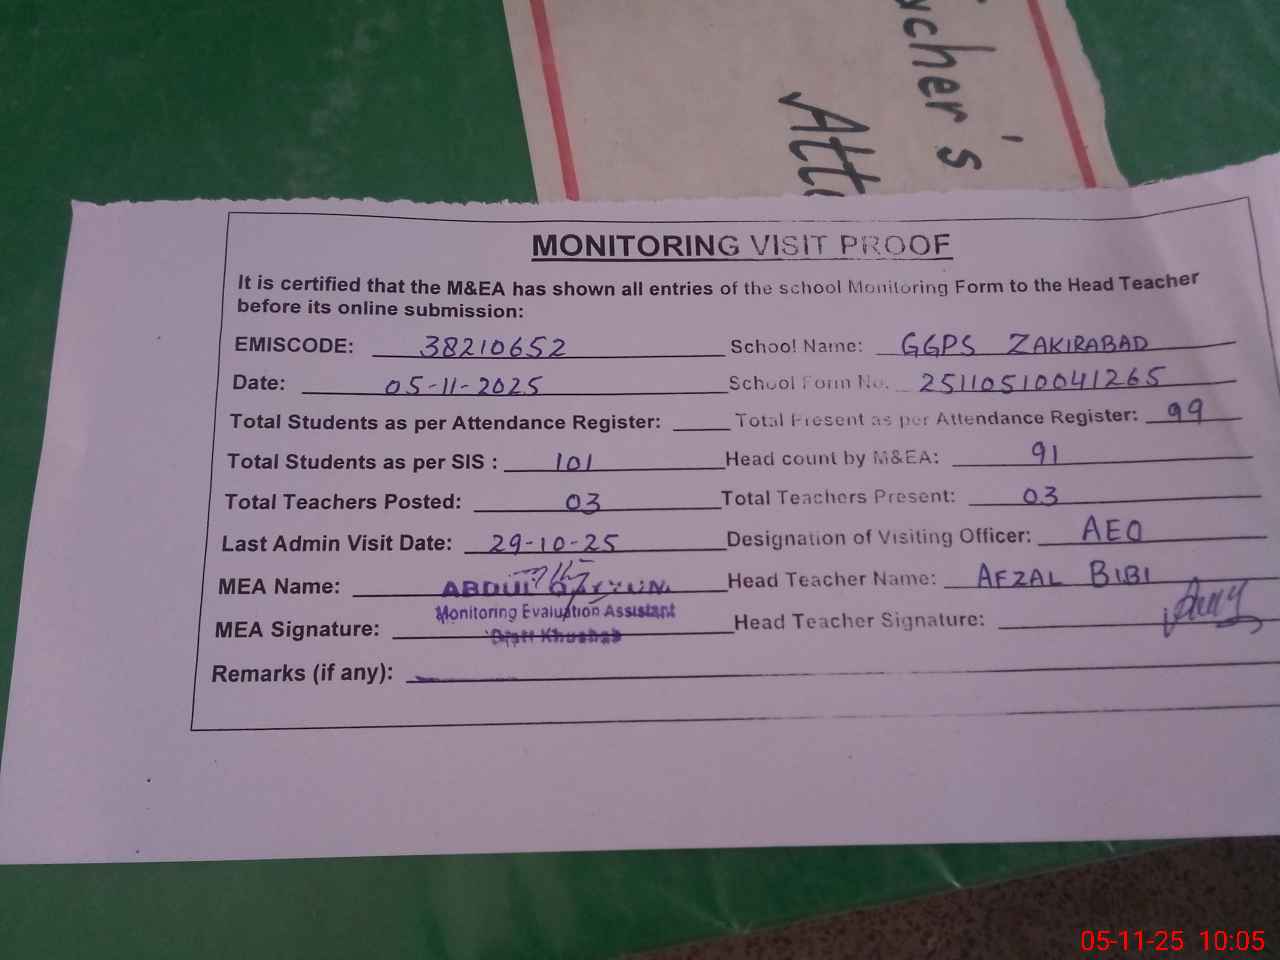 cher's
Att
MONITORING VISIT PROOF
It is certified that the M&EA has shown all entries of the school Monitoring Form to the Head Teacher
before its online submission:
EMISCODE: 38210652 School Name: GGPS ZAKIRABAD
Date: 05-11-2025 School Form No. 25110510041265
Total Students as per Attendance Register: Total Present as per Attendance Register: 99
Total Students as per SIS : 101 Head count by M&EA: 91
Total Teachers Posted: 03 Total Teachers Present: 03
Last Admin Visit Date: 29-10-25 Designation of Visiting Officer: AEO
MEA Name: ABDUL Head Teacher Name: AFZAL BIBI
Monitoring Evaluation Assistant
MEA Signature: Distt Khushab Head Teacher Signature:
Remarks (if any):
05-11-25 10:05